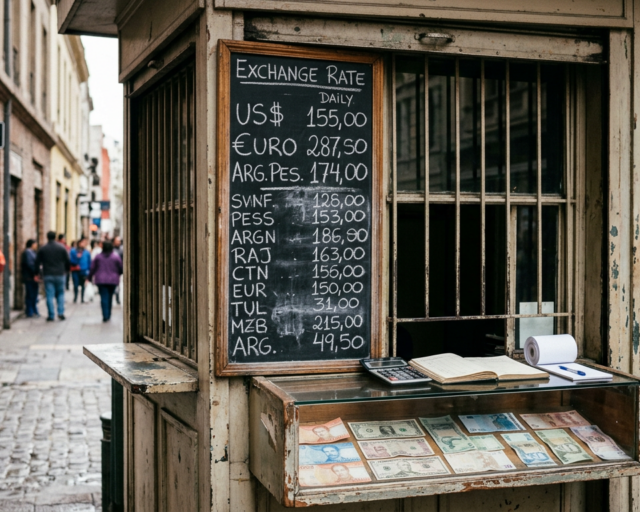 EXCHANGE RATE
DAILY
US$ 155,00
€URO 287,50
ARG.PES. 174,00
SVNF. 128,00
PESS 153,00
ARGN 186,90
RAJ 163,00
CTN 156,00
EUR 150,00
TUL 31,00
MZB 215,00
ARG. 49,50